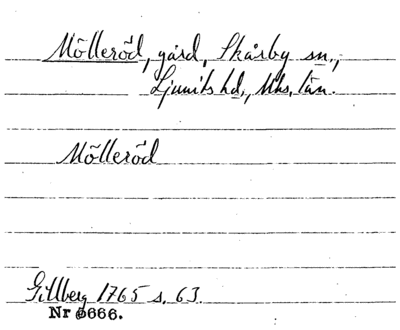 Mölleröd, gård, Skårby sn.,
Ljunits hd., Mhs. län.
Mölleröd
Gillberg 1765 s. 63.
Nr 6666.